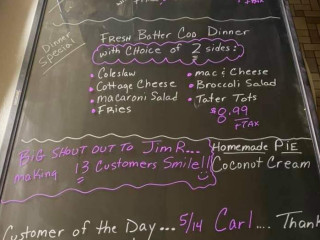 +TAX
Dinner Special
FRESH Batter Cod Dinner
with CHOICE of 2 sides:
• Coleslaw
• Cottage Cheese
• macaroni Salad
• FRIES
• mac & Cheese
• Broccoli Salad
• Tater Tots
$8.99
+TAX
BIG SHOUT OUT TO Jim R....
making 13 Customers Smile!!
Homemade PIE
Coconut Cream
Customer of the Day... 5/14 Carl.... Thank